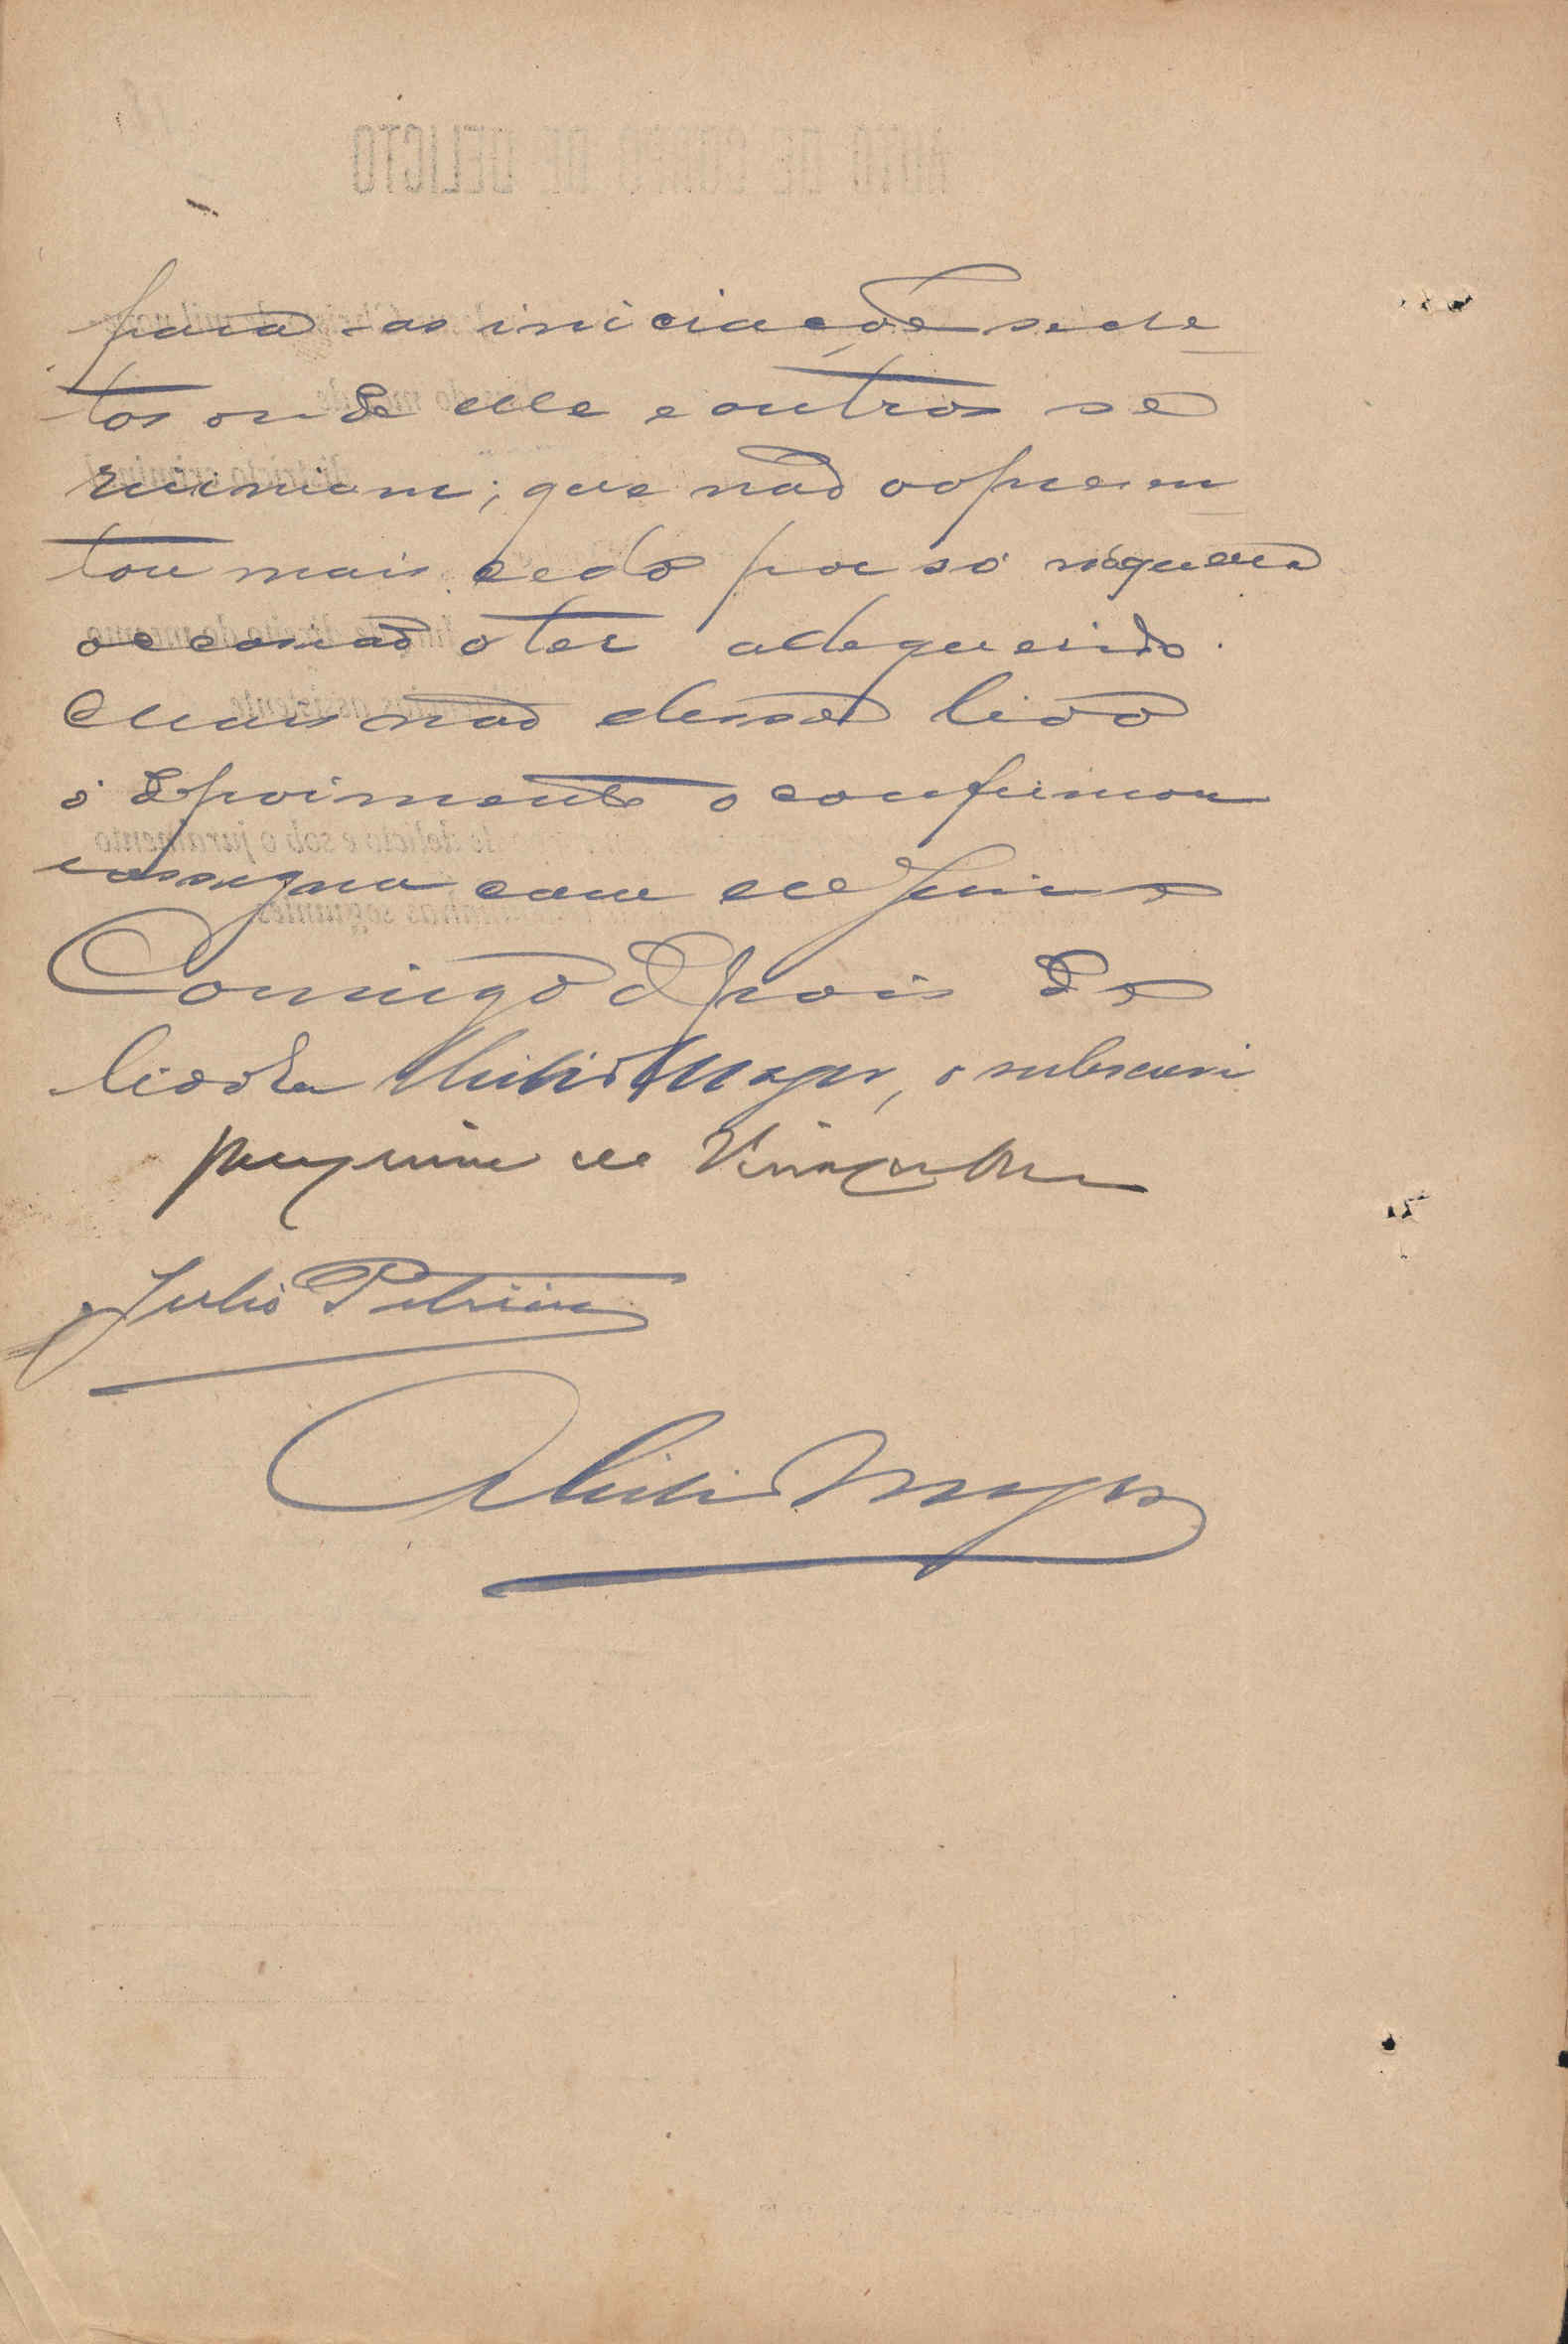 para as iniciações secre
tos onde elle e outros se
reuniam; que não o apresen
tou mais cedo por só n'aquella
occasião o ter adequerido.
E mais não disse lido
o depoimento o confirmou
e assigna com elle Juiz e
Comigo depois de
lido Eu Abilio Magro, o subscrevi
Julio Petrim
Abilio Magro